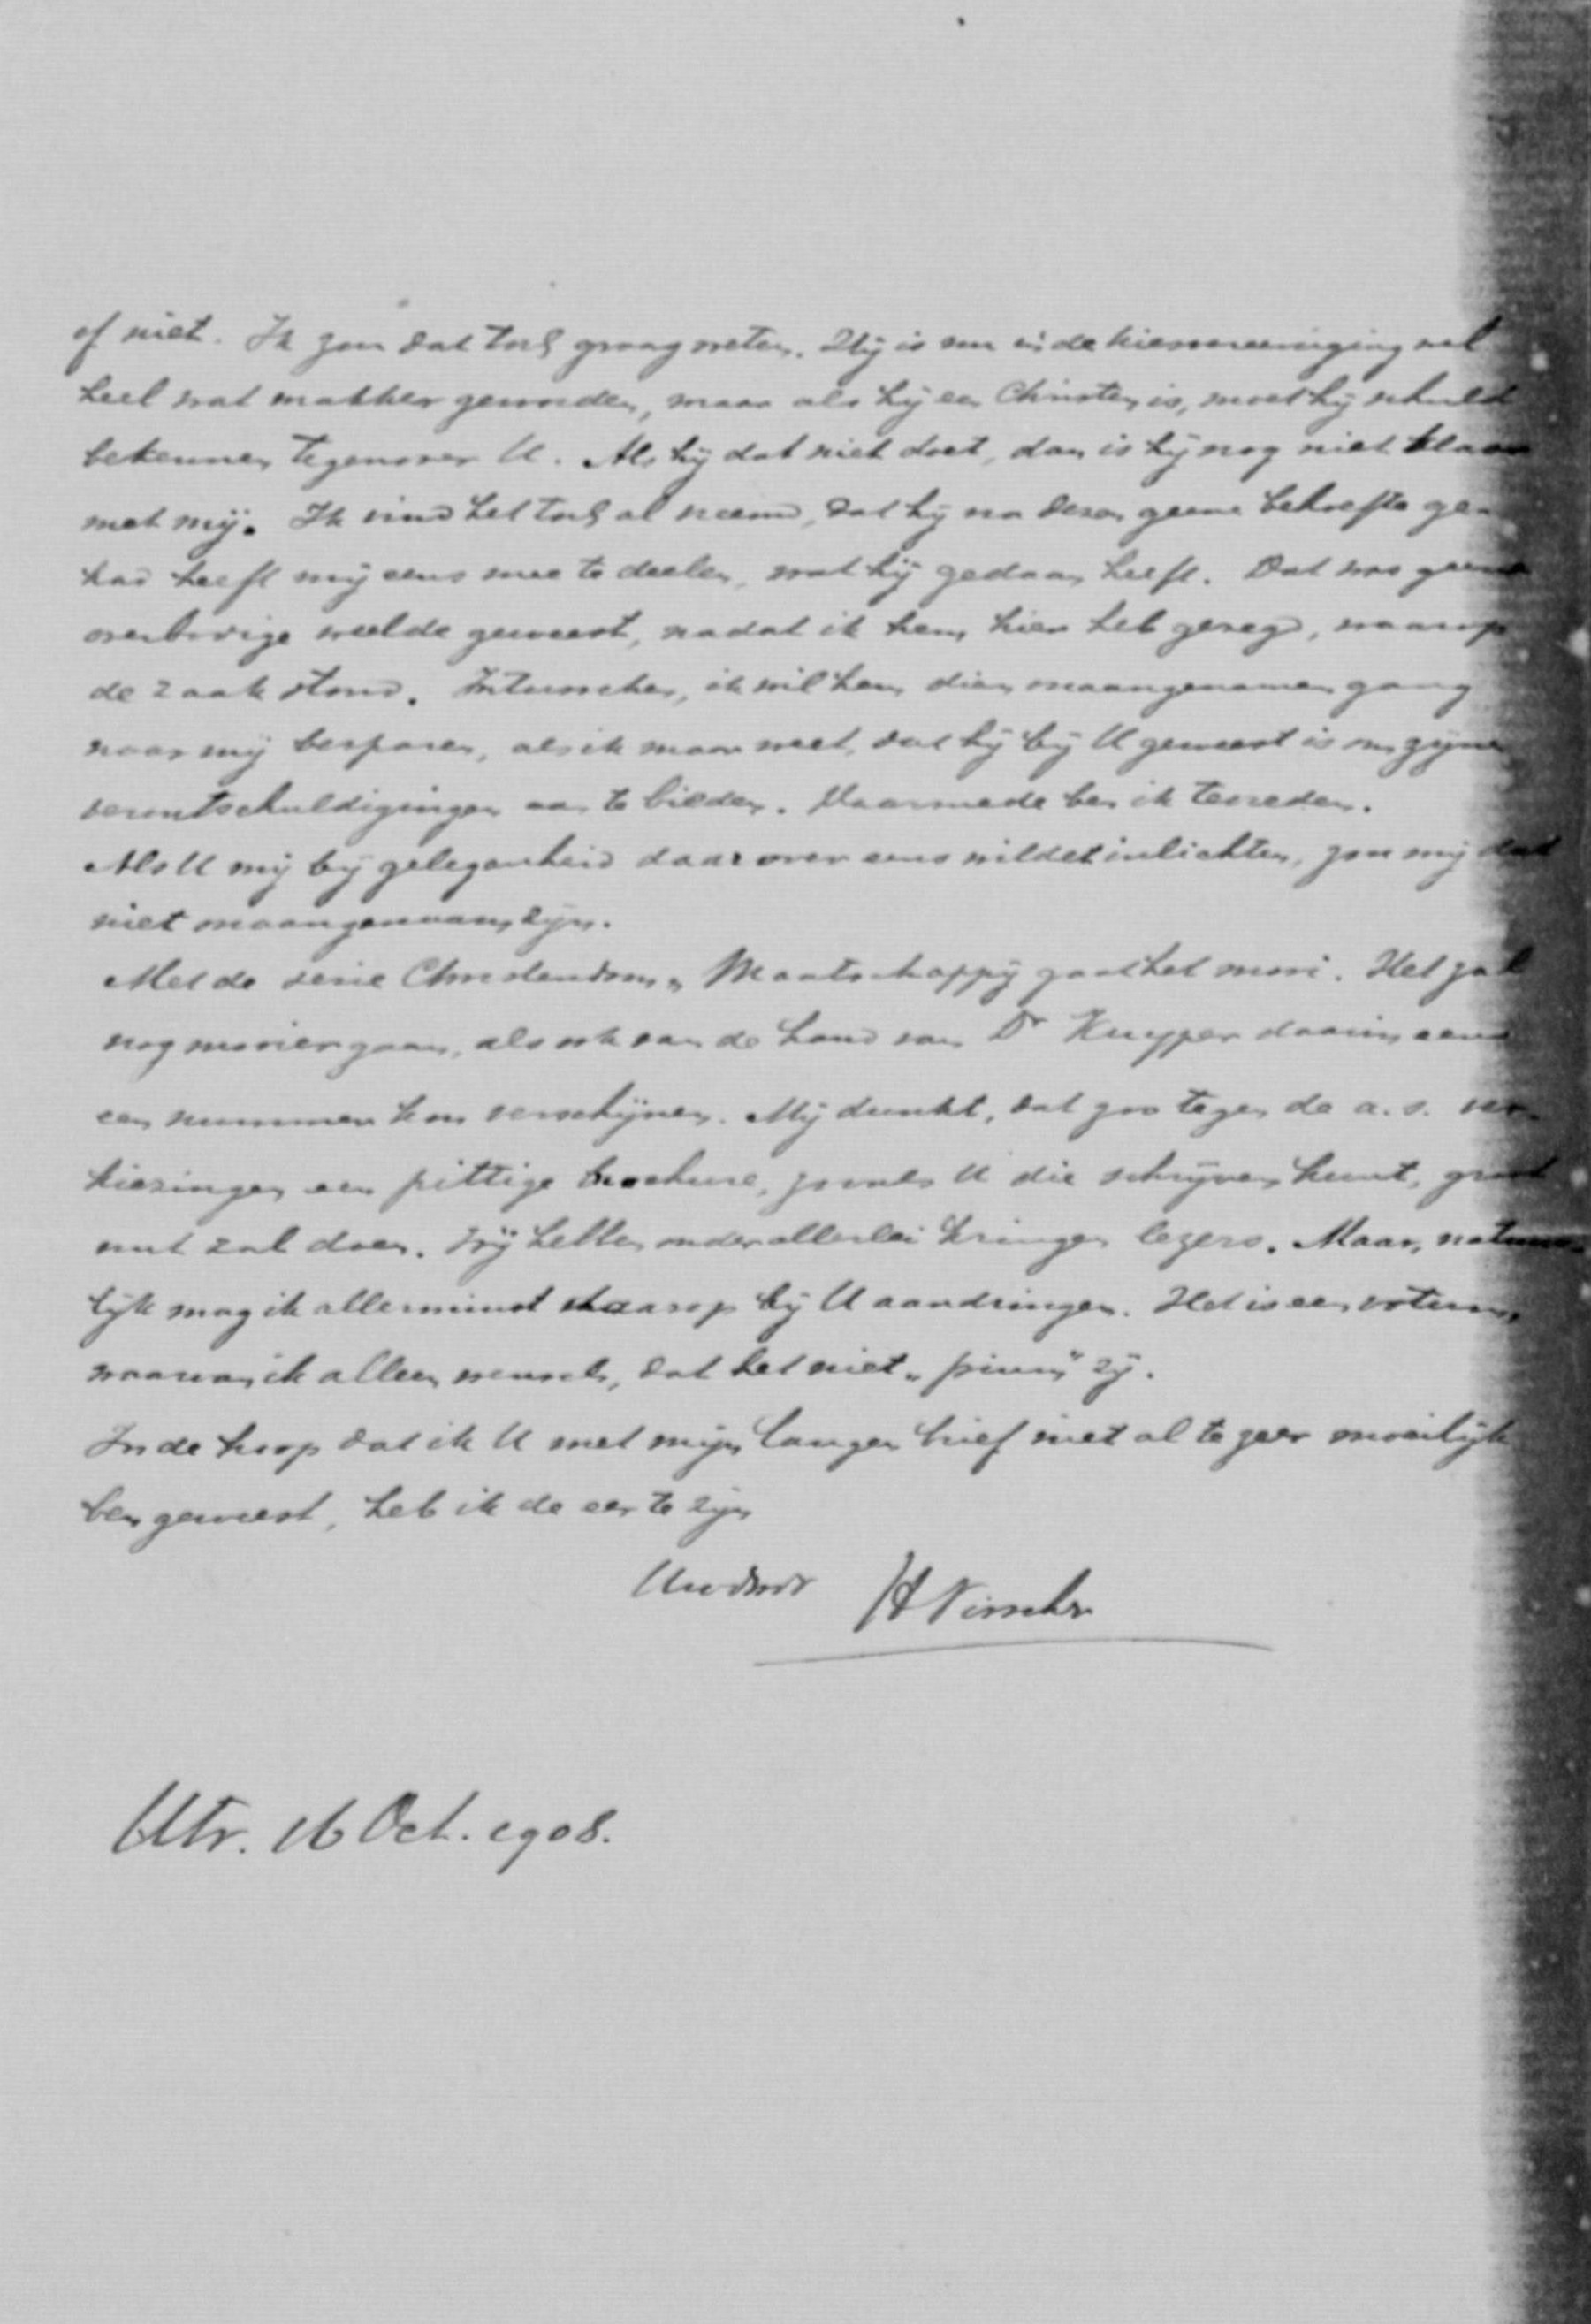 of niet. Ik zou dat toch graag weten. Hij is nu in de kiesvereeniging wel
heel wat makker geworden, maar als hij een Christen is, moet hij schuld
bekennen tegenover U. Als hij dat niet doet, dan is hij nog niet klaar
met mij. Ik vind het toch al vreemd, dat hij na dezen geene behoefte ge-
had heeft mij eens mee te deelen, wat hij gedaan heeft. Dat was geene
overbodige weelde geweest, nadat ik hem hier heb gezegd, waarop
de zaak stond. Intusschen, ik wil hem dien onaangenamen gang
naar mij besparen, als ik maar weet, dat hij bij U geweest is om zijne
verontschuldigingen aan te bieden. Daarmede ben ik tevreden.
Als U mij bij gelegenheid daarover eens wildet inlichten, zou mij dat
niet onaangenaam zijn.
Met de serie Christendom en Maatschappij gaat het mooi. Het zal
nog mooier gaan, als ook van de hand van Dr Kuyper daarin eens
een nummer kon verschijnen. Mij dunkt, dat zoo tegen de a.s. ver-
kiezingen een pittige brochure, zooals U die schrijven kunt, groot
nut zal doen. Wij hebben onder allerlei kringen lezers. Maar, natuur-
lijk mag ik allerminst daarop bij U aandringen. Het is een votum,
waarvan ik alleen wensch, dat het niet "pium" zij.
In de hoop dat ik U met mijn langen brief niet al te zeer moeilijk
ben geweest, heb ik de eer te zijn
Uwdwdr HVisscher
Utr. 16 Oct. 1908.